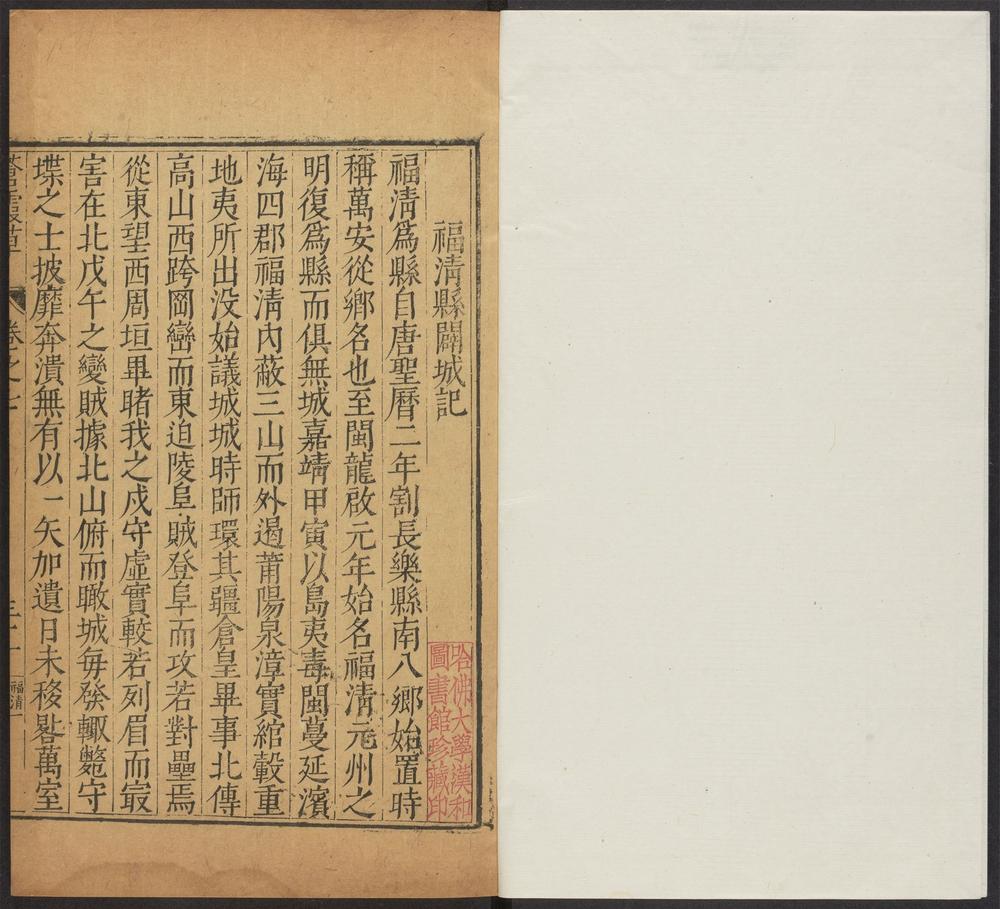 福清縣闢城記
福清爲縣自唐聖曆二年割長樂縣南八鄉始置時
稱萬安從鄉名也至閩龍啟元年始名福清元州之
明復爲縣而俱無城嘉靖甲寅以島夷毒閩蔓延濱
海四郡福清内蔽三山而外遏莆陽泉漳實綰轂重
地夷所出没始議城城時師環其疆倉皇畢事北傳
高山西跨岡巒而東迫陵皇賊登阜而攻若對壘焉
從東望西周垣畢睹我之戍守虛實較若列眉而㝡
害在北戊午之變賊據北山俯而瞰城毎發輙斃守
堞之士披靡奔潰無有以一矢加遺日未移晷萬室
蒼霞草
卷之十
福清一
哈佛大學漢和
圖書館珍藏印